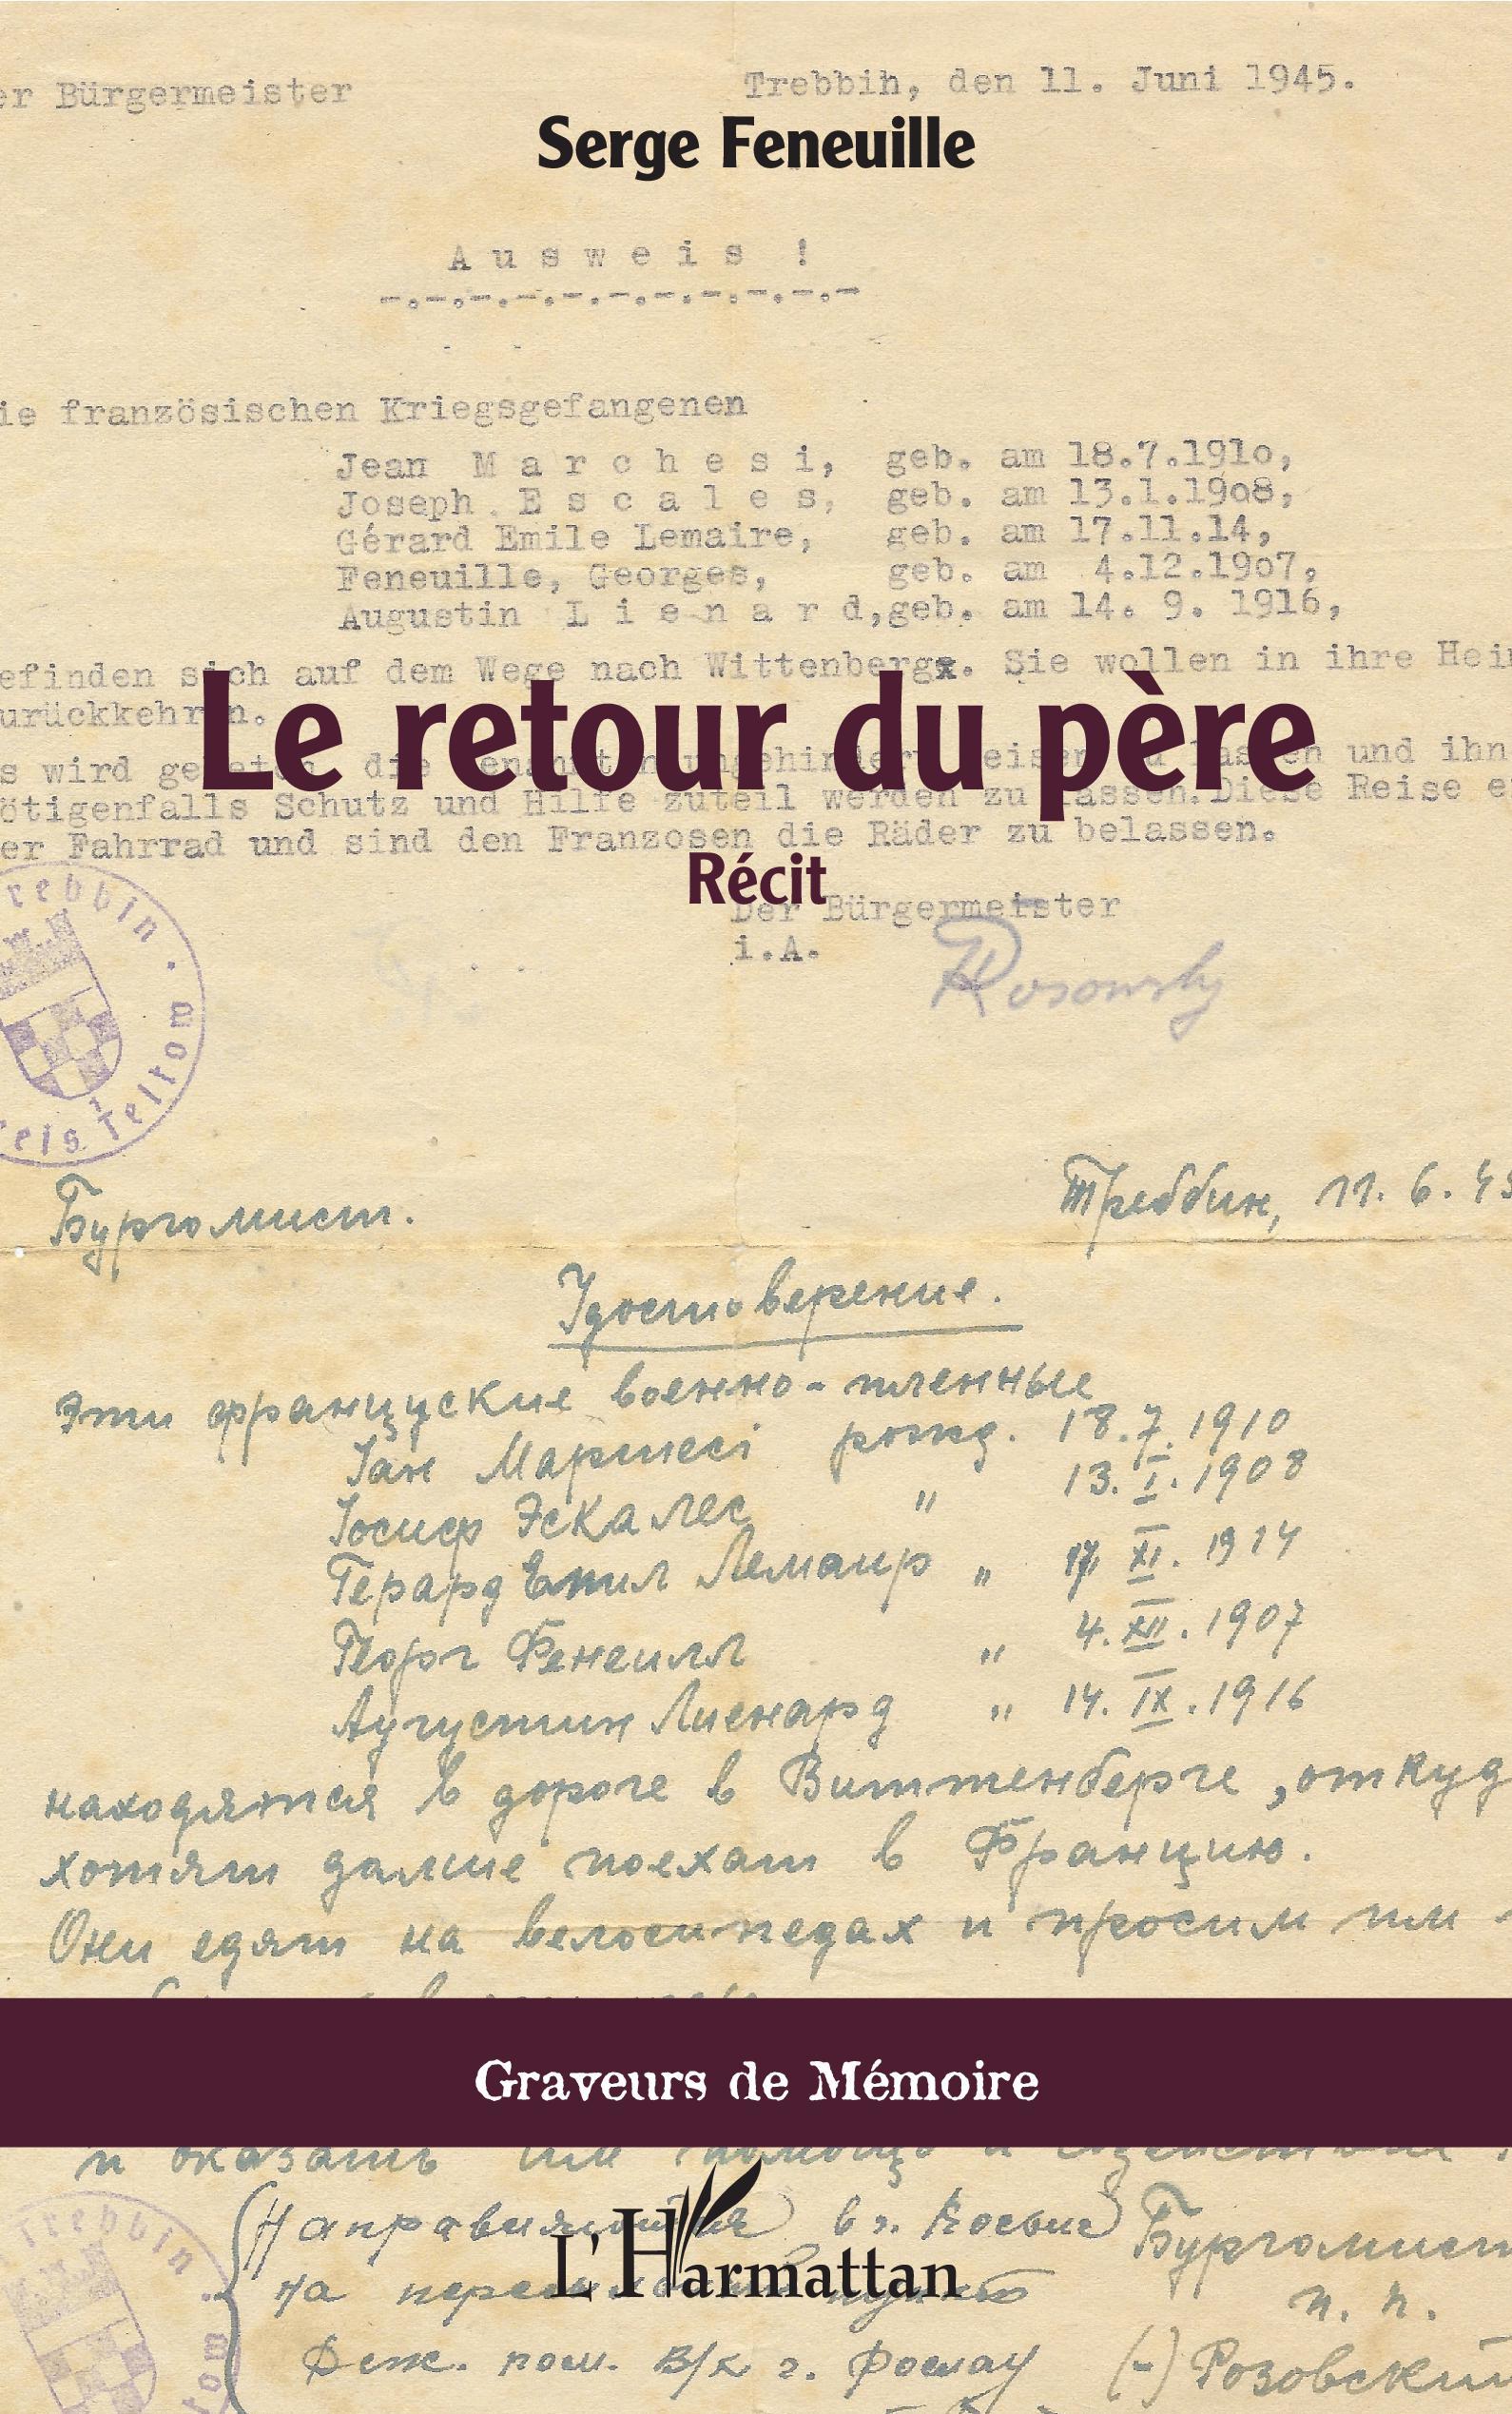 er Bürgermeister
Trebbin, den 11. Juni 1945.
Serge Feneuille
A u s w e i s !
-.-.-.-.-.-.-.-.-.-.-
ie französischen Kriegsgefangenen
Jean M a r c h e s i, geb. am 18.7.1910,
Joseph E s c a l e s, geb. am 13.1.1908,
Gérard Emile Lemaire, geb. am 17.11.14,
Feneuille, Georges, geb. am 4.12.1907,
Augustin L i e n a r d, geb. am 14. 9. 1916,
efinden sich auf dem Wege nach Wittenberg. Sie wollen in ihre Hei
urückkehren.
Le retour du père
s wird gebeten, die und ihn
ötigenfalls Schutz und Hilfe zuteil werden zu lassen. Diese Reise e
er Fahrrad und sind den Franzosen die Räder zu belassen.
Récit
Der Bürgermeister
i.A.
Rosowsky
rebbin · eis Teltow
Бургомист.
Треббин, 11. 6. 45
Удостоверение.
Эти француские военно-пленные
Іан Маршесі рожд. 18.7.1910
Іосиф Эскалес " 13. I. 1908
Герард Емил Лемаир " 17. XI. 1914
Георг Фенеилл " 4. XII. 1907
Аугустин Лиенард " 14. IX. 1916
находятся в дороге в Виттенберге, откуд
хотят далше поехат в Францию.
Они едят на велосипедах и просим им
Graveurs de Mémoire
и оказать им помощь и
Направляются в г.
Бургомист
L'Harmattan
на
п. п.
(-) Розовский
trebbin · tow